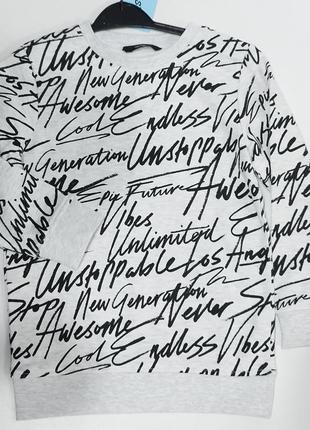 Unstoppable Los Ang
New Generation Never
Awesome
Cool Endless Vibes
New Generation Unstoppable
Epic Future Awesome
Vibes Never
Unlimited
Unstoppable Los Ang
Stop New Generation
Awesome Never Future
Cool Endless Vibes